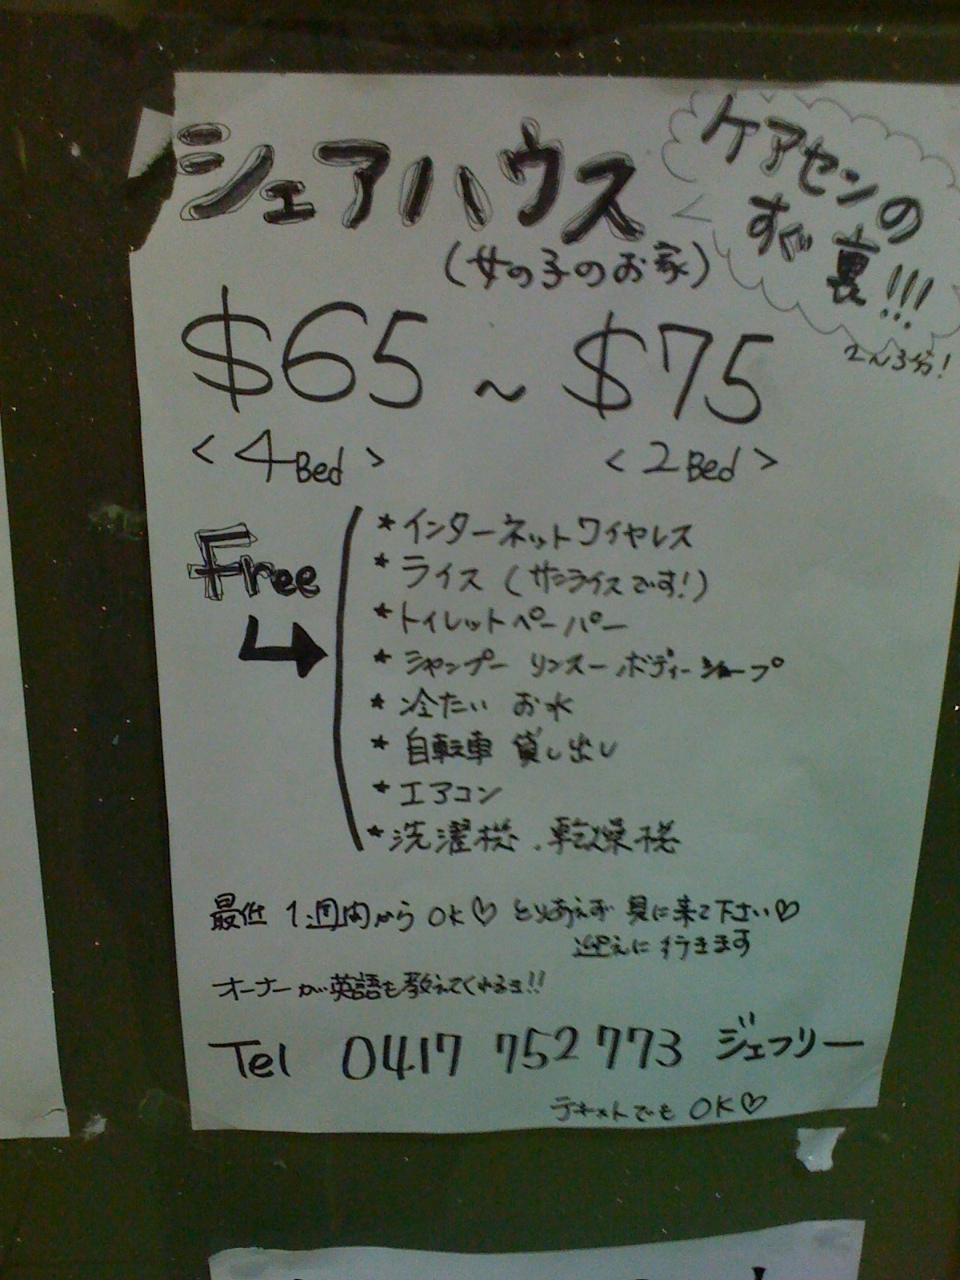 シェアハウス
ケアセンの
すぐ裏!!!
2~3分!
(女の子のお家)
$65 ~ $75
<4Bed> <2Bed>
Free
* インターネットワイヤレス
* ライス (サンライスです!)
* トイレットペーパー
* シャンプー リンスー ボディーショープ
* 冷たい お水
* 自転車 貸し出し
* エアコン
* 洗濯機、乾燥機
最低 1週間から OK♡ とりあえず 見に来て下さい♡
迎えに行きます
オーナーが英語も教えてくれるョ!!
Tel 0417 752 773 ジェフリー
テキストでも OK♡